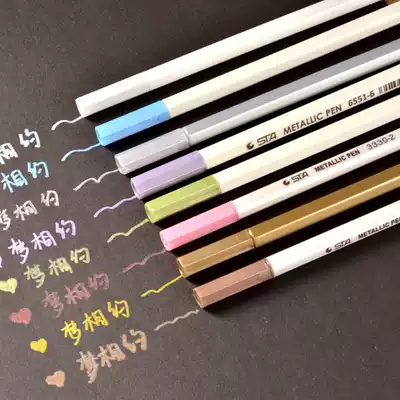 相约
梦相约
梦相约
梦相约
梦相约
梦相约
梦相约
梦相约
STA METALLIC PEN 6551-6
STA METALLIC PEN 3330-2
STA METALLIC PEN